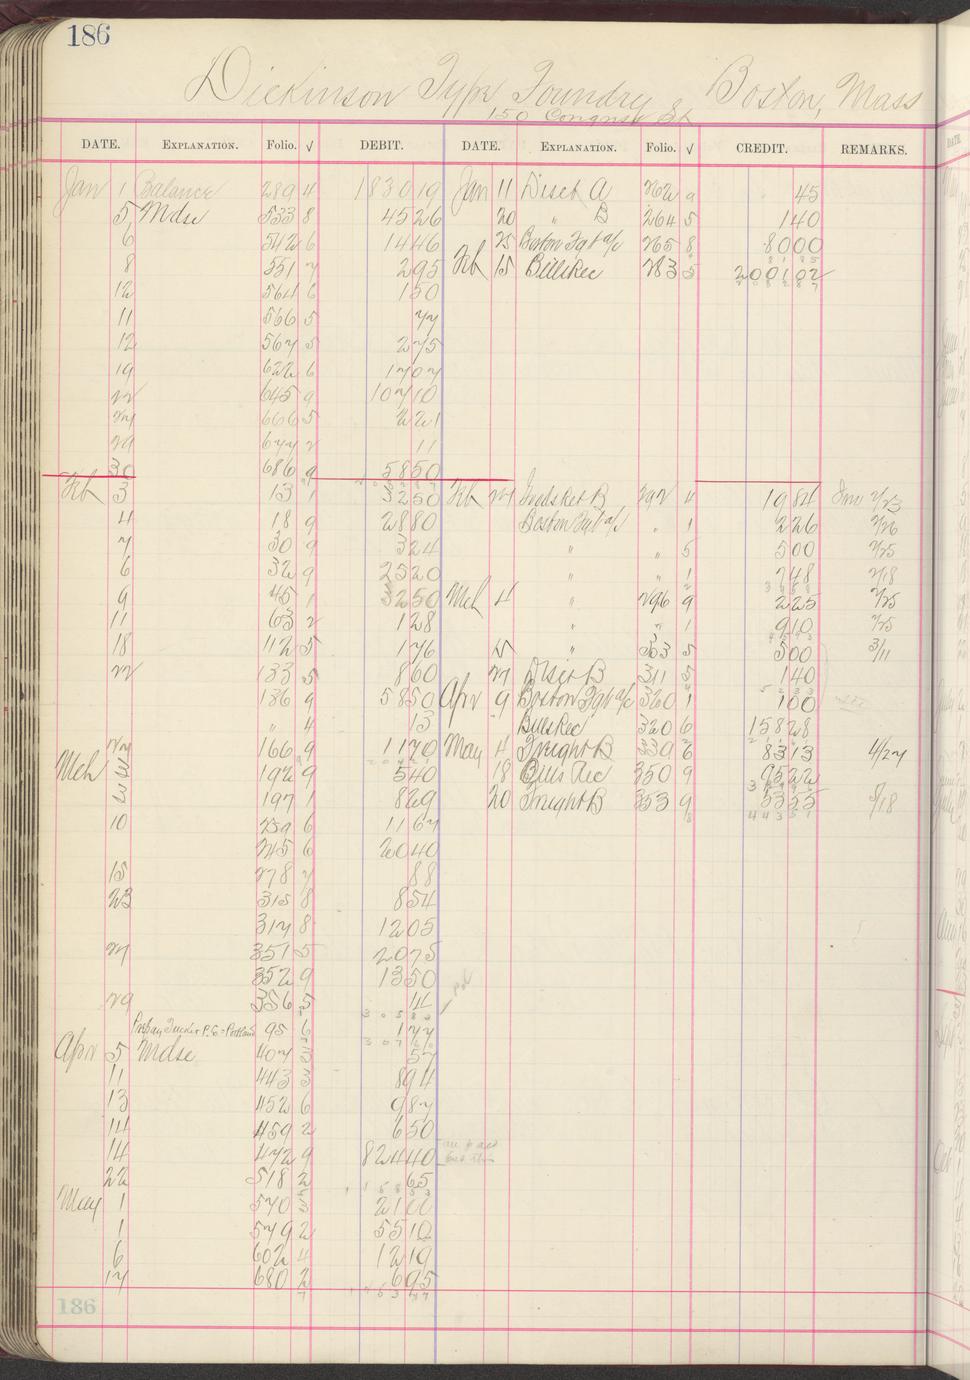 186
Dickinson Type Foundry Boston, Mass
150 Congress St
DATE. EXPLANATION. Folio. √ DEBIT. DATE. EXPLANATION. Folio. √ CREDIT. REMARKS.
Jan 1 Balance 289 4 1830 19 Jan 11 Disct A 262 9 45
5 Mdse 533 8 45 26 20 " B 264 5 1 40
6 542 6 14 46 25 Boston Fgt a/c 265 8 80 00
8 551 7 2 95 Feb 15 Bills Rec 283 5 2001 02
12 564 6 1 50
11 566 5 77
12 567 5 2 75
19 622 6 17 07
22 645 9 107 10
27 666 5 2 21
29 677 2 11
30 686 9 58 50
Feb 3 13 1 32 50 Feb 27 B 292 4 19 84 Inv 2/23
4 18 9 28 80 Boston Fgt a/c " 1 2 26 2/26
7 30 9 3 24 " " 5 5 00 2/25
6 32 9 25 20 " " 1 7 48 2/18
9 45 1 32 50 Mch 4 " 296 9 2 25 2/25
11 63 2 1 28 " " 1 9 10 2/25
18 112 5 1 76 15 " 303 5 5 00 3/11
22 133 5 8 60 27 Disct B 311 5 1 40
136 9 58 50 Apr 9 Boston Fgt a/c 320 1 1 00
" 4 13 " Bills Rec 320 6 158 28
27 166 9 11 70 May 4 Freight B 339 6 83 13 4/27
Mch 3 192 9 5 40 18 Bills Rec 350 9 95 22
3 197 1 8 29 20 Freight B 353 9 53 55 5/18
10 239 6 11 67
245 6 20 40
15 278 7 88
23 315 8 8 54
317 8 12 05
27 351 5 20 75
352 9 13 50
29 356 5 14
95 6 1 77
Apr 5 Mdse 407 3 57
11 443 3 8 94
13 452 6 9 87
14 459 2 6 50
14 472 9 824 40
22 518 2 65
May 1 570 3 21 00
1 579 2 55 10
6 602 4 12 19
17 680 2 6 95
186